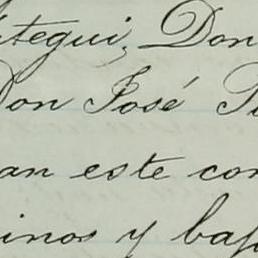 itegui, Don
Don José
an este con
inos y baj